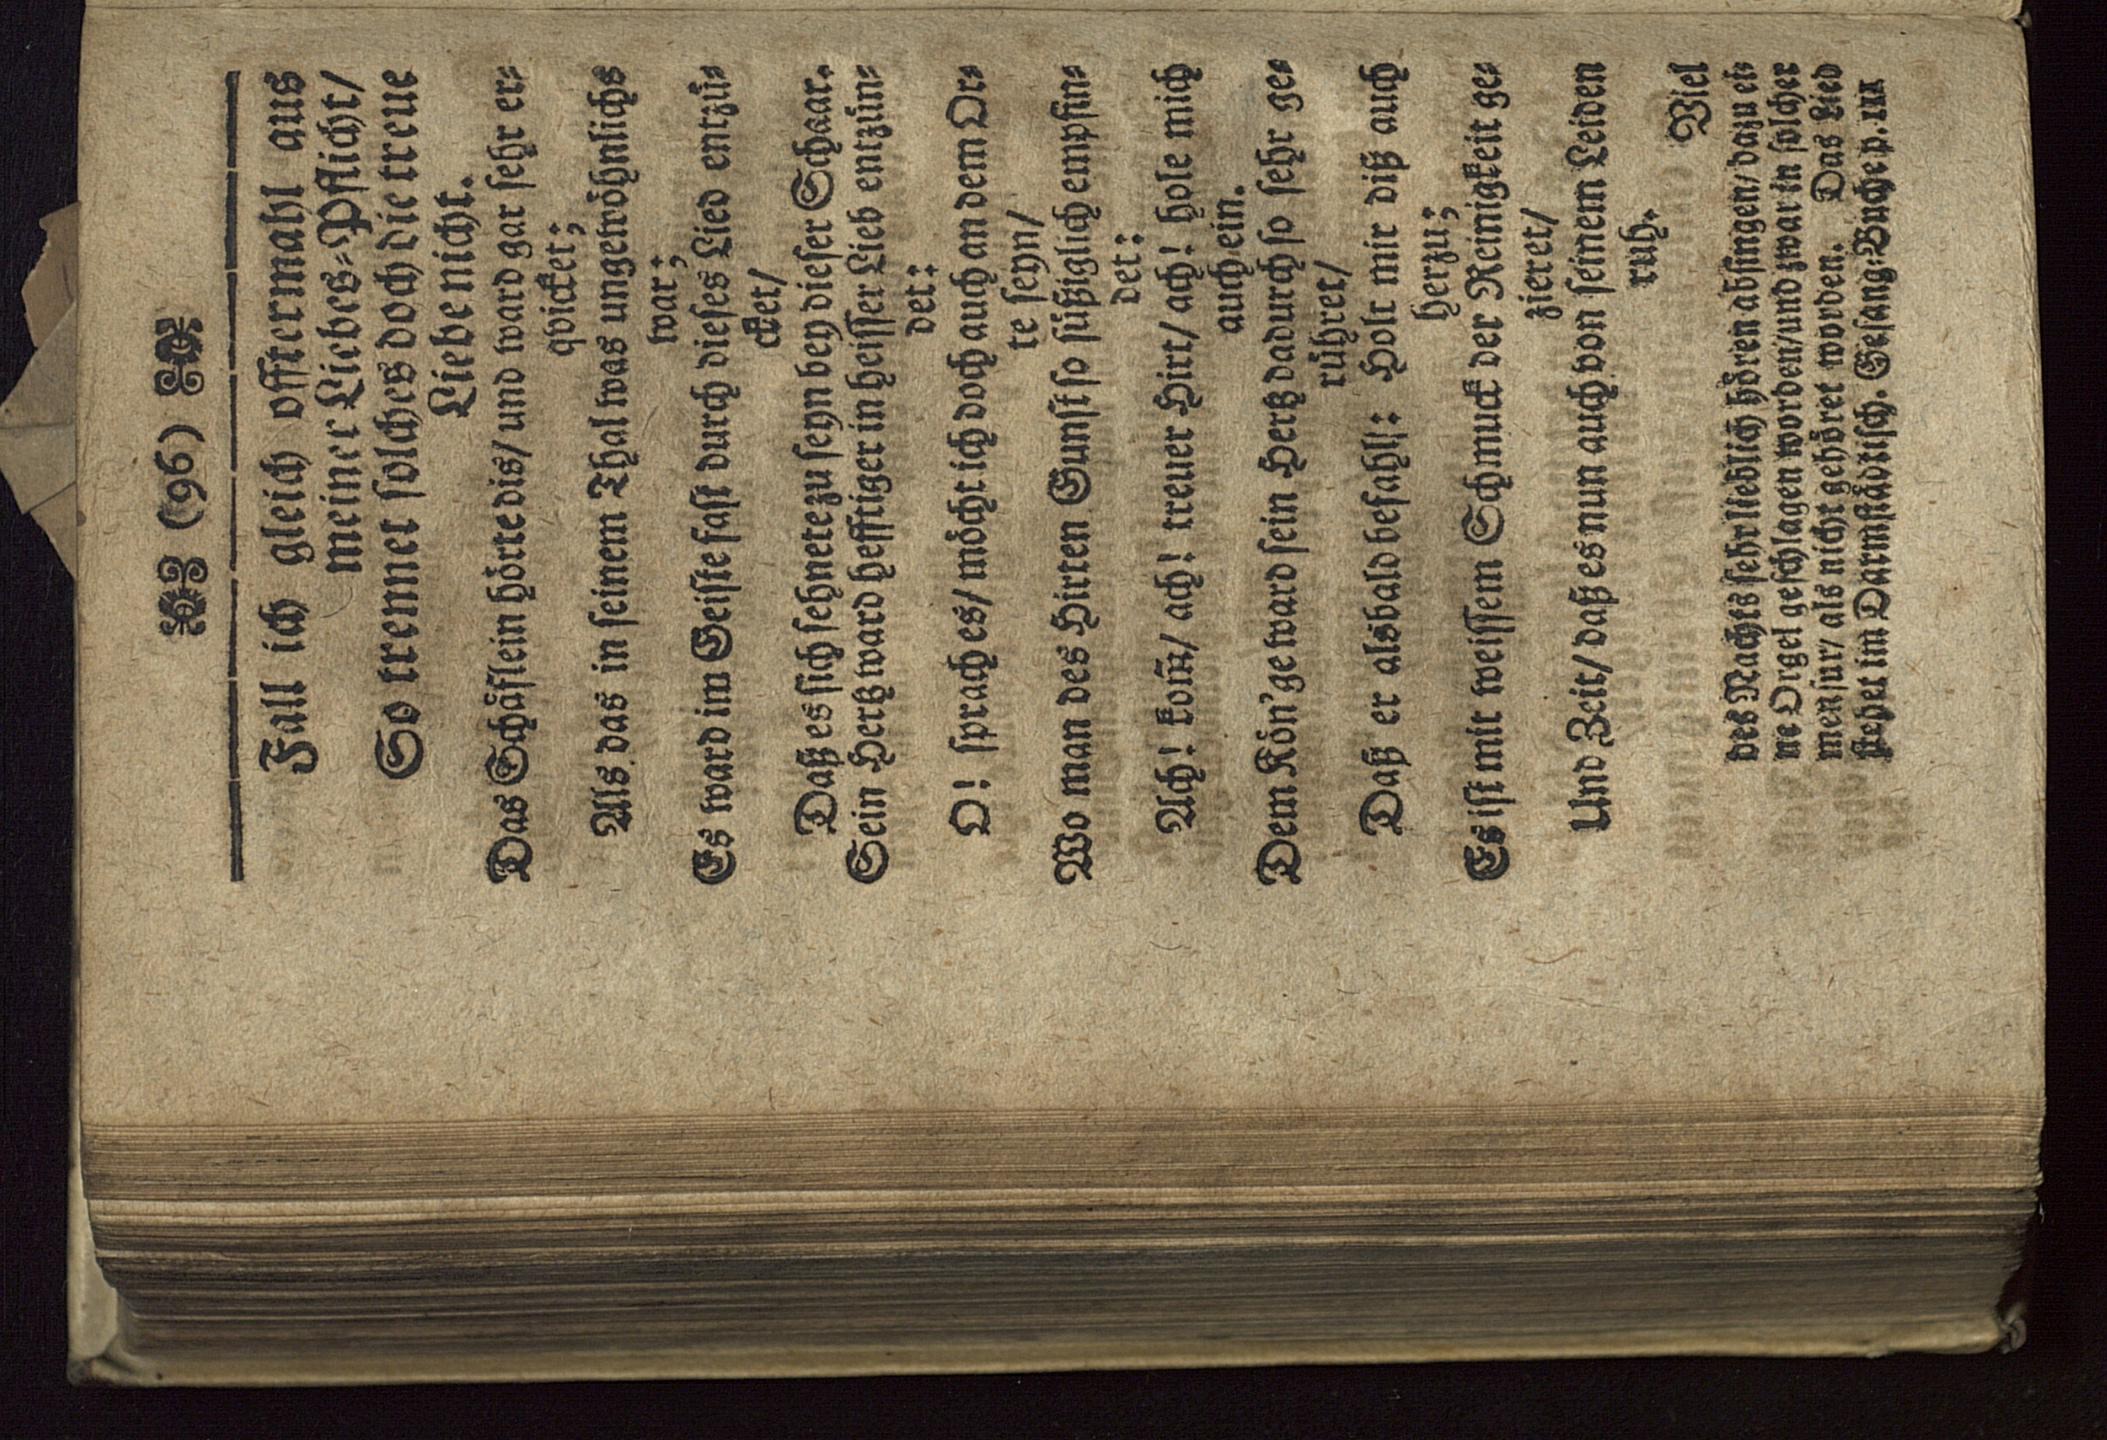 (96)
Fall ich gleich offtermahl aus
meiner Liebes-Pflicht/
So trennet solches doch die treue
Liebe nicht.
Das Schäflein hörte dis/ und ward gar sehr er-
qvicket;
Als das in seinem Thal was ungewöhnlichs
war;
Es ward im Geiste fast durch dieses Lied entzü-
cket/
Daß es sich sehnete zu seyn bey dieser Schaar.
Sein Hertz ward hefftiger in heisser Lieb entzün-
det:
O! sprach es/ möcht ich doch auch an dem Or-
te seyn/
Wo man des Hirten Gunst so süßiglich empfin-
det:
Ach! kom̃/ ach! treuer Hirt/ ach! hole mich
auch ein.
Dem Kön'ge ward sein Hertz dadurch so sehr ge-
rühret/
Daß er alsbald befahl: Holt mir diß auch
herzu;
Es ist mit weissem Schmuck der Reinigkeit ge-
zieret/
Und Zeit/ daß es nun auch von seinem Leiden
ruh.
Viel
des Nachts sehr lieblich hören absingen/ dazu ei-
ne Orgel geschlagen worden/ und zwar in solcher
mensur/ als nicht gehöret worden. Das Lied
stehet im Darmstädtisch. Gesang-Buche p. 111